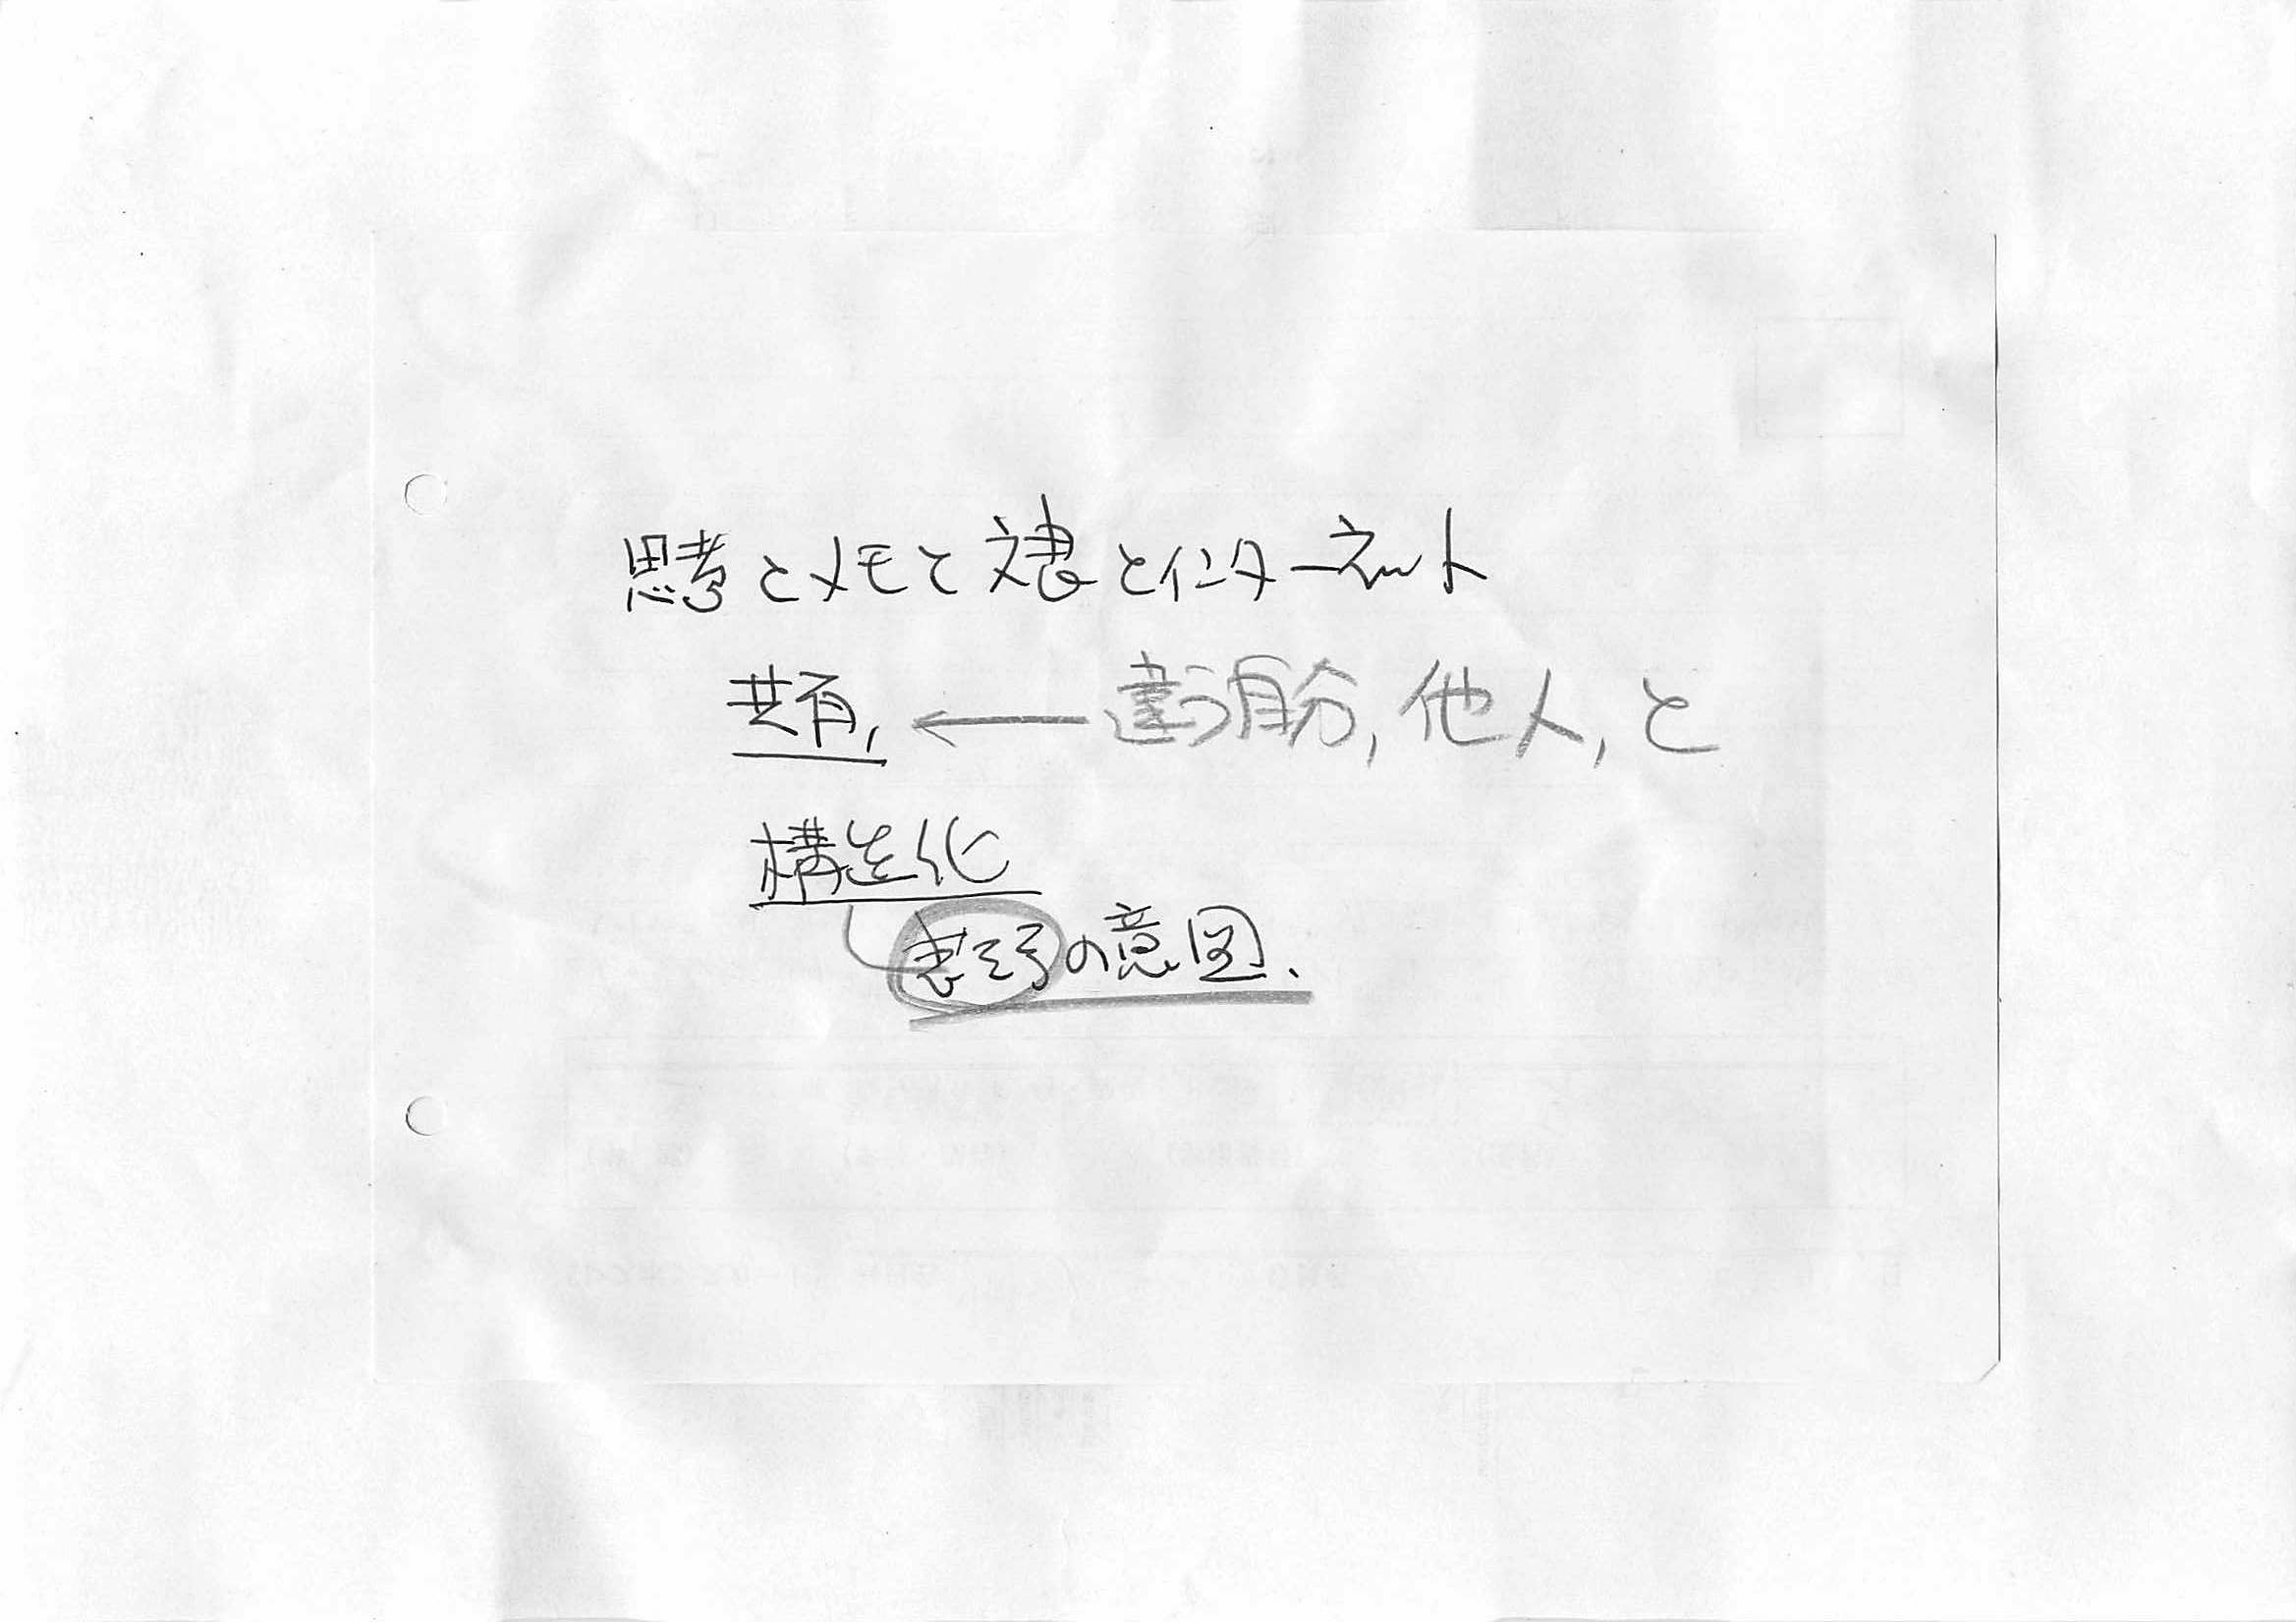 思考とメモと文書とインターネット
共有, ← 違う自分, 他人, と
構造化
の意図.